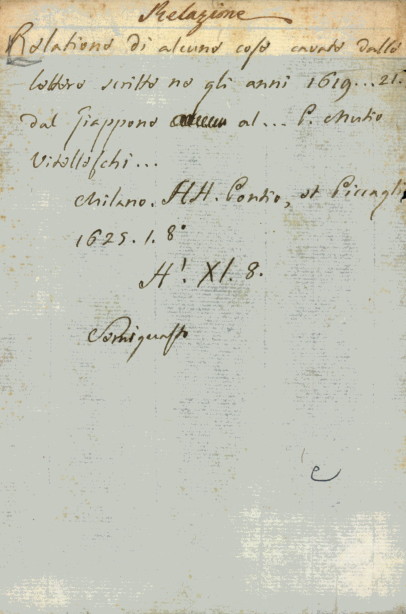 Relazione
Relatione di alcune cose cavate dalle
lettere scritte ne gli anni 1619...21.
dal Giappone al... P. Mutio
Vitelleschi...
Milano. HH. Pontio, et Piccagli
1625. 1. 8°
H'. XI. 8.
e